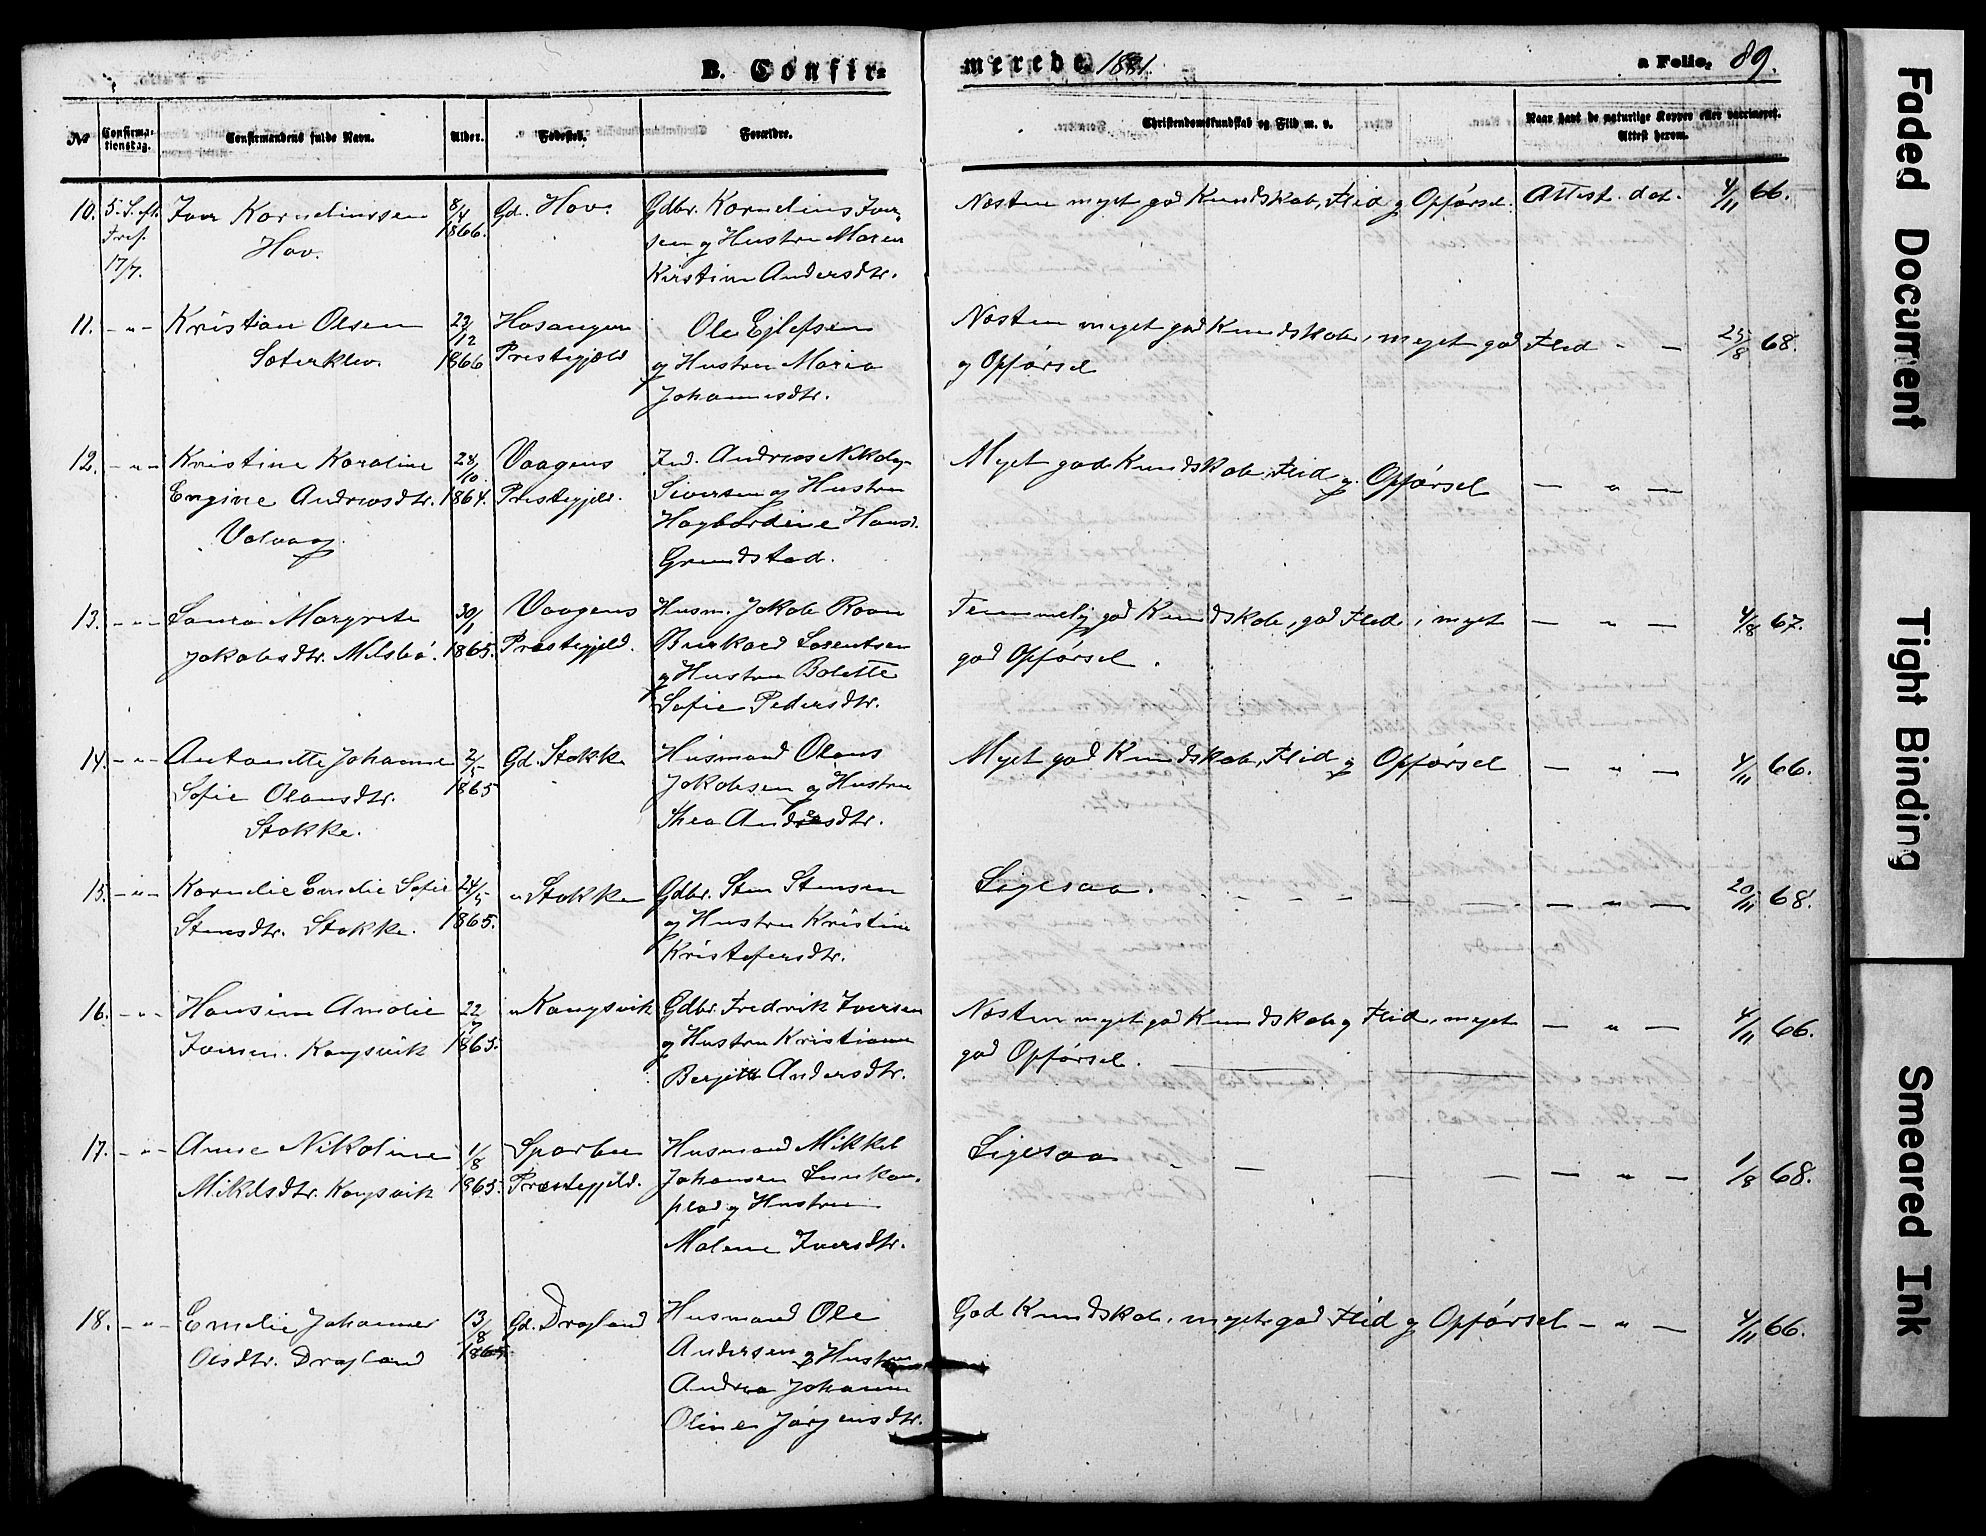 B. Confir=
merede 1881.
a Folio. 89.
No
Confirma-
tionsdag.
Confirmandens fulde Navn.
Alder.
Fødested.
Forældre.
Christendomskundskab og Flid m. v.
Naar havt de naturlige Kopper eller vaccineret.
Attest herom.
10. 5. S. eft. Iver Kornelinssen 8/4 Gd. Hov. Gdbr. Kornelius Iver- Næsten meget god Kundskab, Flid og Opførsel. Attest. dat. 4/11 66.
Tref. Hov. 1866. sen og Hustru Maren
17/7. Kirstine Andersdtr.
11. – " – Kristian Olsen 22/12 Hosanger Ole Ejlefsen Næsten meget god Kundskab, meget god Flid " – 25/8 68.
Sæterklev. 1866 Prestegjæld og Hustru Maria og Opførsel
Johannesdtr.
12. – " – Kristine Karoline 28/10 Vaagens Ind. Andreas Nikolay Meget god Kundskab, Flid og Opførsel – " –
Engine Andreasdtr. 1864. Prestegjeld. Sivertsen og Hustru
Valvaag. Hagbardine Hansd.
Grundstad.
13. – " – Laura Margrete 30/1 Vaagens Husm. Jakob Raan Temmelig god Kundskab, god Flid, meget – " – 4/18 67.
Jakobsdtr. Milsbø. 1865. Præstegjeld. Burkard Lorentsen god Opførsel.
og Hustru Bolette
Sofie Pedersdtr.
14. – " – Antonette Johanne 2/5 Gd. Stokke Husmand Olaus Meget god Kundskab, Flid og Opførsel – " – 4/11 66.
Sofie Olausdtr. 1865 Jakobsen og Hustru
Stokke. Thea Andresdtr.
15. – " – Kornelie Emelie Sofie 24/5 " Stokke Gdbr. Sten Stensen Ligesaa. – " – 20/11 68.
Stensdtr. Stokke. 1865. og Hustru Kristine
Kristofersdtr.
16. – " – Hansine Amalie 22/7 " Kongsvik Gdbr. Fredrik Iversen Næsten meget god Kundskab og Flid, meget – " – 4/11 66.
Iversen. Kongsvik 1865. og Hustru Kristiane god Opførsel.
Bergitte Andersdtr.
17. – " – Anne Nikoline 1/8 Sparbu Husmand Mikkel Ligesaa – " – 1/8 68.
Mikelsdtr. Kongsvik 1865. Præstegjeld. Johansen
og Hustru
Malene Iversdtr.
18. – " – Emelie Johanne 13/8 Gd. Dragland Husmand Ole God Kundskab, meget god Flid og Opførsel – " – 4/11 66.
Olsdtr. Dragland 1865 Andersen og Hustru
Andrea Johanne
Oline Jørgensdtr.
Faded Document
Tight Binding
Smeared Ink